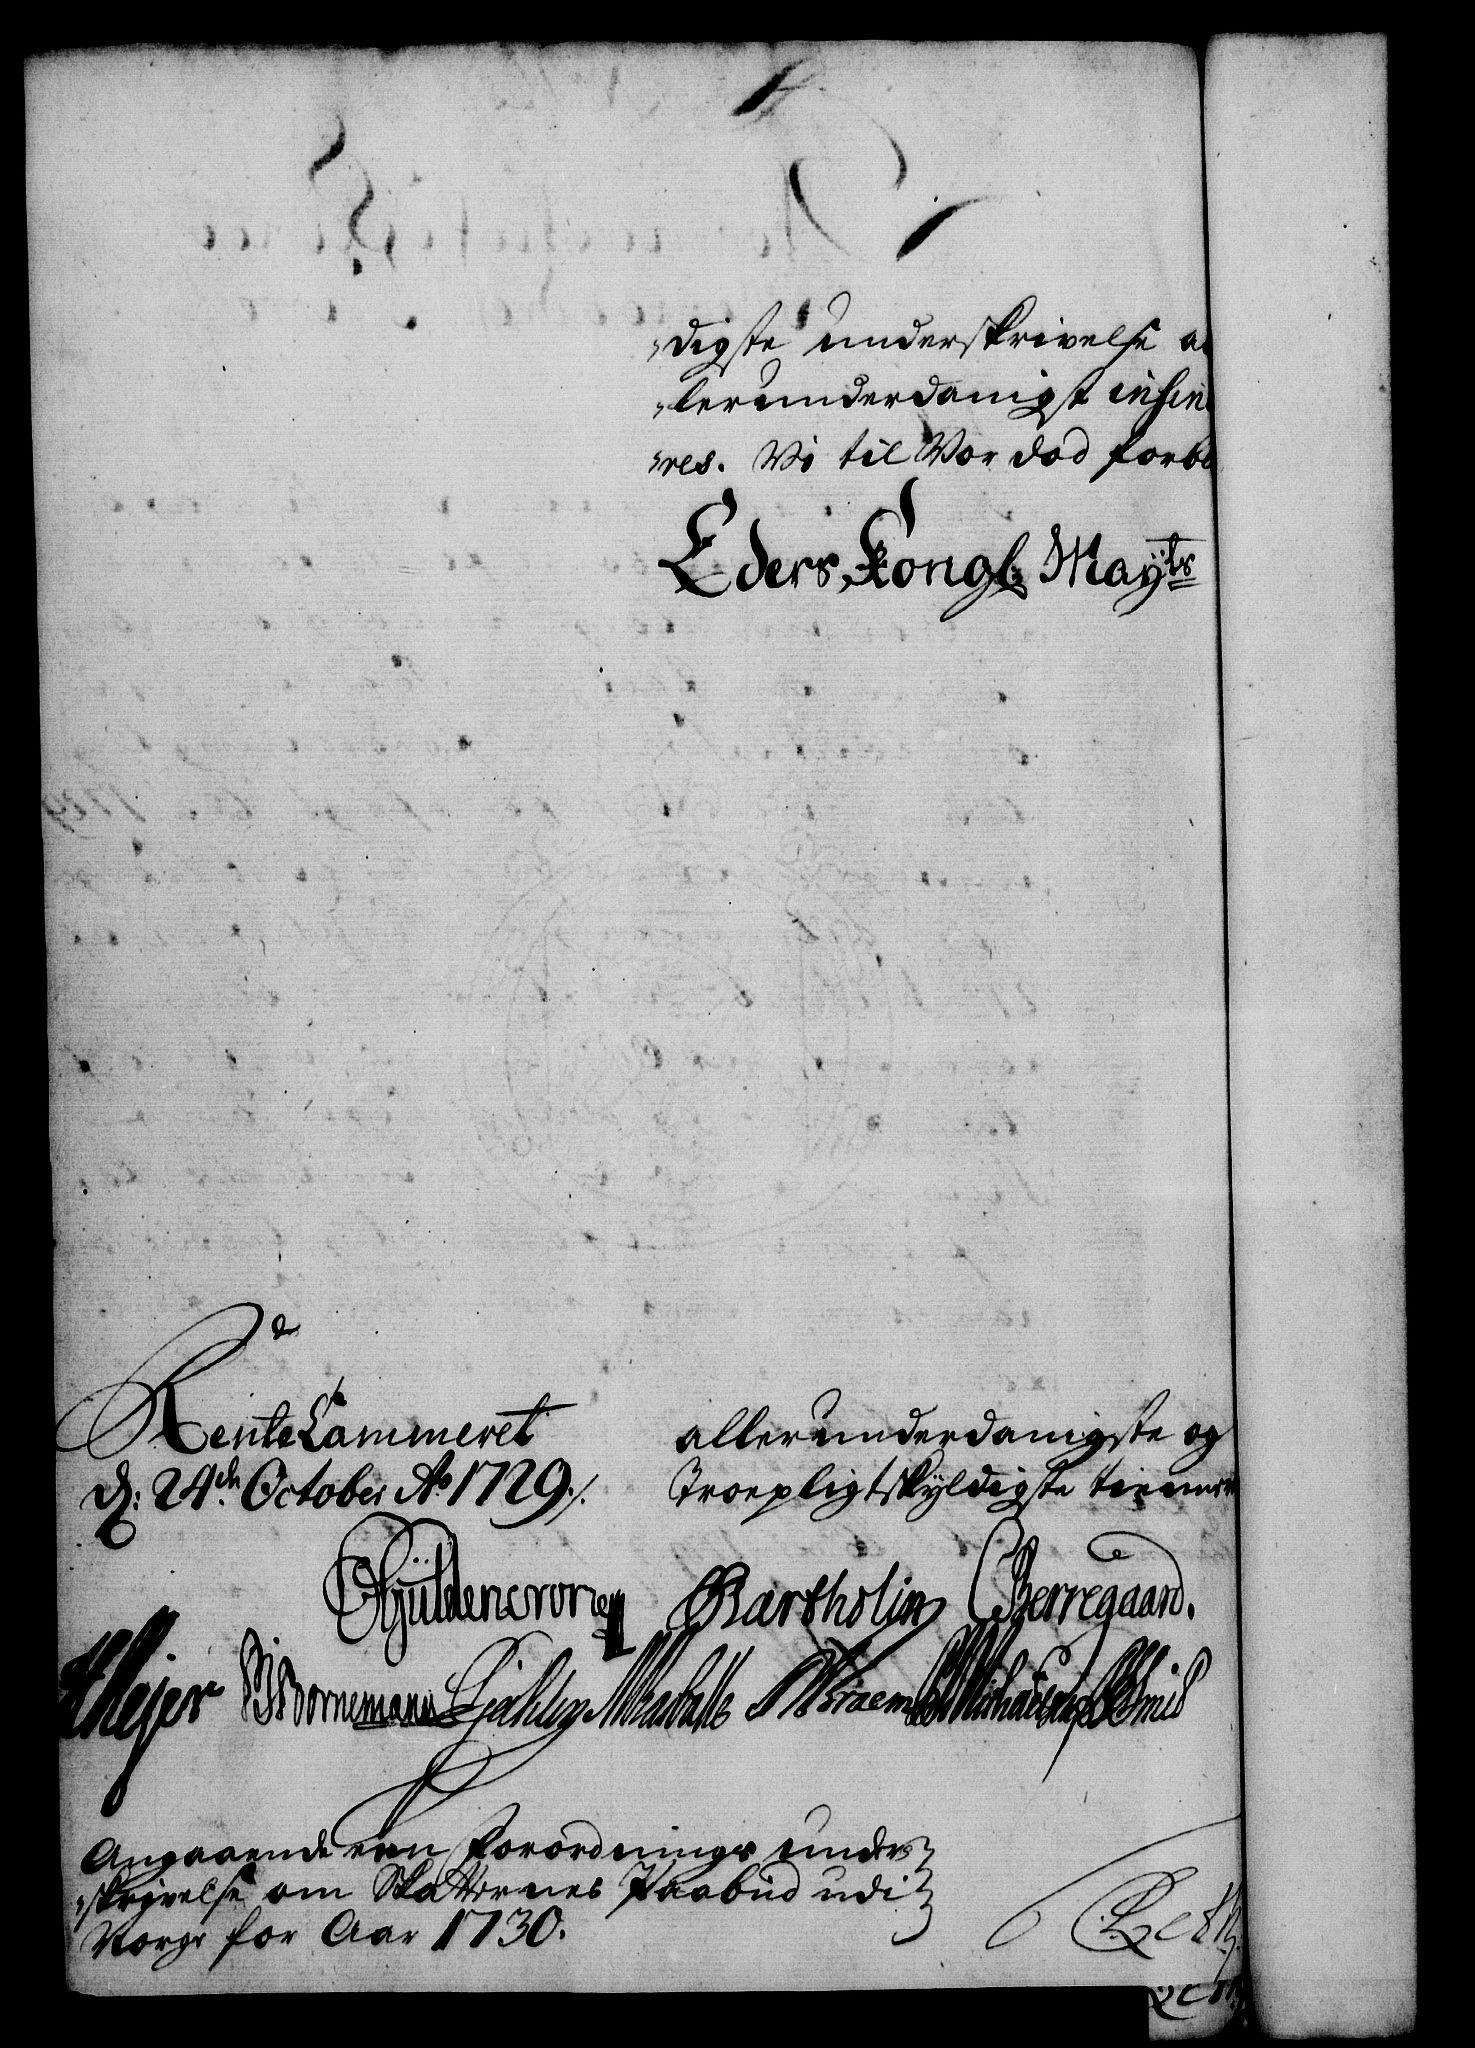 digste underskrivelse al
lerunderdanigst insinue
res. Vi til Vor død forbl
Eders Kongl Mayts
RenteCammeret
d: 24de October Ao 1729.
allerunderdanigste og
Troepligtskyldigste tienere
Güldencrone Bartholin CBerregaard.
Meyer Bornemann
Angaaende een Forordnings under
skrivelse om Skatternes Paabud udi
Norge for Aar 1730.